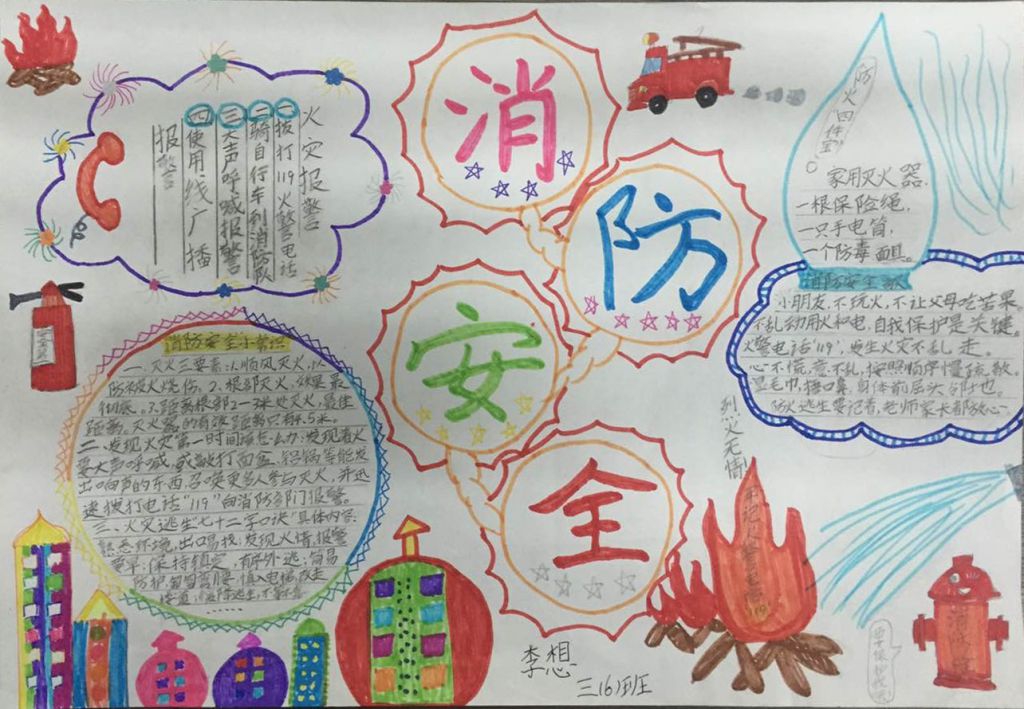 消
防
安
全
火灾报警
一拨打119火警电话
二骑自行车到消防队
三大声呼喊报警
四使用线广播
报警
防火四件宝
家用灭火器.
一根保险绳,
一只手电筒,
一个防毒面具。
消防安全歌
小朋友,不玩火,不让父母吃苦果
不乱动用火和电,自我保护是关键。
火警电话'119',发生火灾不乱走。
心不慌,意不乱,按照顺序慢疏散。
湿毛巾,捂口鼻,身体前屈头
防火逃生要记清,老师家长都放心。
消防安全小常识
一、灭火三要素:1.顺风灭火,以
防被火烧伤。2.根部灭火,效果最
彻底。3.距离根部2-3米处灭火,最佳
距离。灭火器的有效距离只有4.5米。
二、发现火灾第一时间应怎么办:发现着火
要大声呼喊,或敲打面盆、铝锅等能发
出响声的东西,召唤更多人参与灭火,并迅
速拨打电话"119"向消防部门报警。
三、火灾逃生"七十二字口诀"具体内容:
熟悉环境,出口易找;发现火情,报警
要早;保持镇定,有序外逃;简易
防护,匍匐弯腰;慎入电梯,改走
烈火无情
牢记火警电话
119
李想
三(6)班